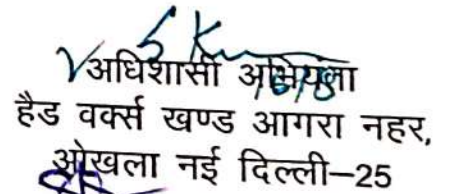 अधिशासी अभियन्ता
हैड वर्क्स खण्ड आगरा नहर,
ओखला नई दिल्ली–25